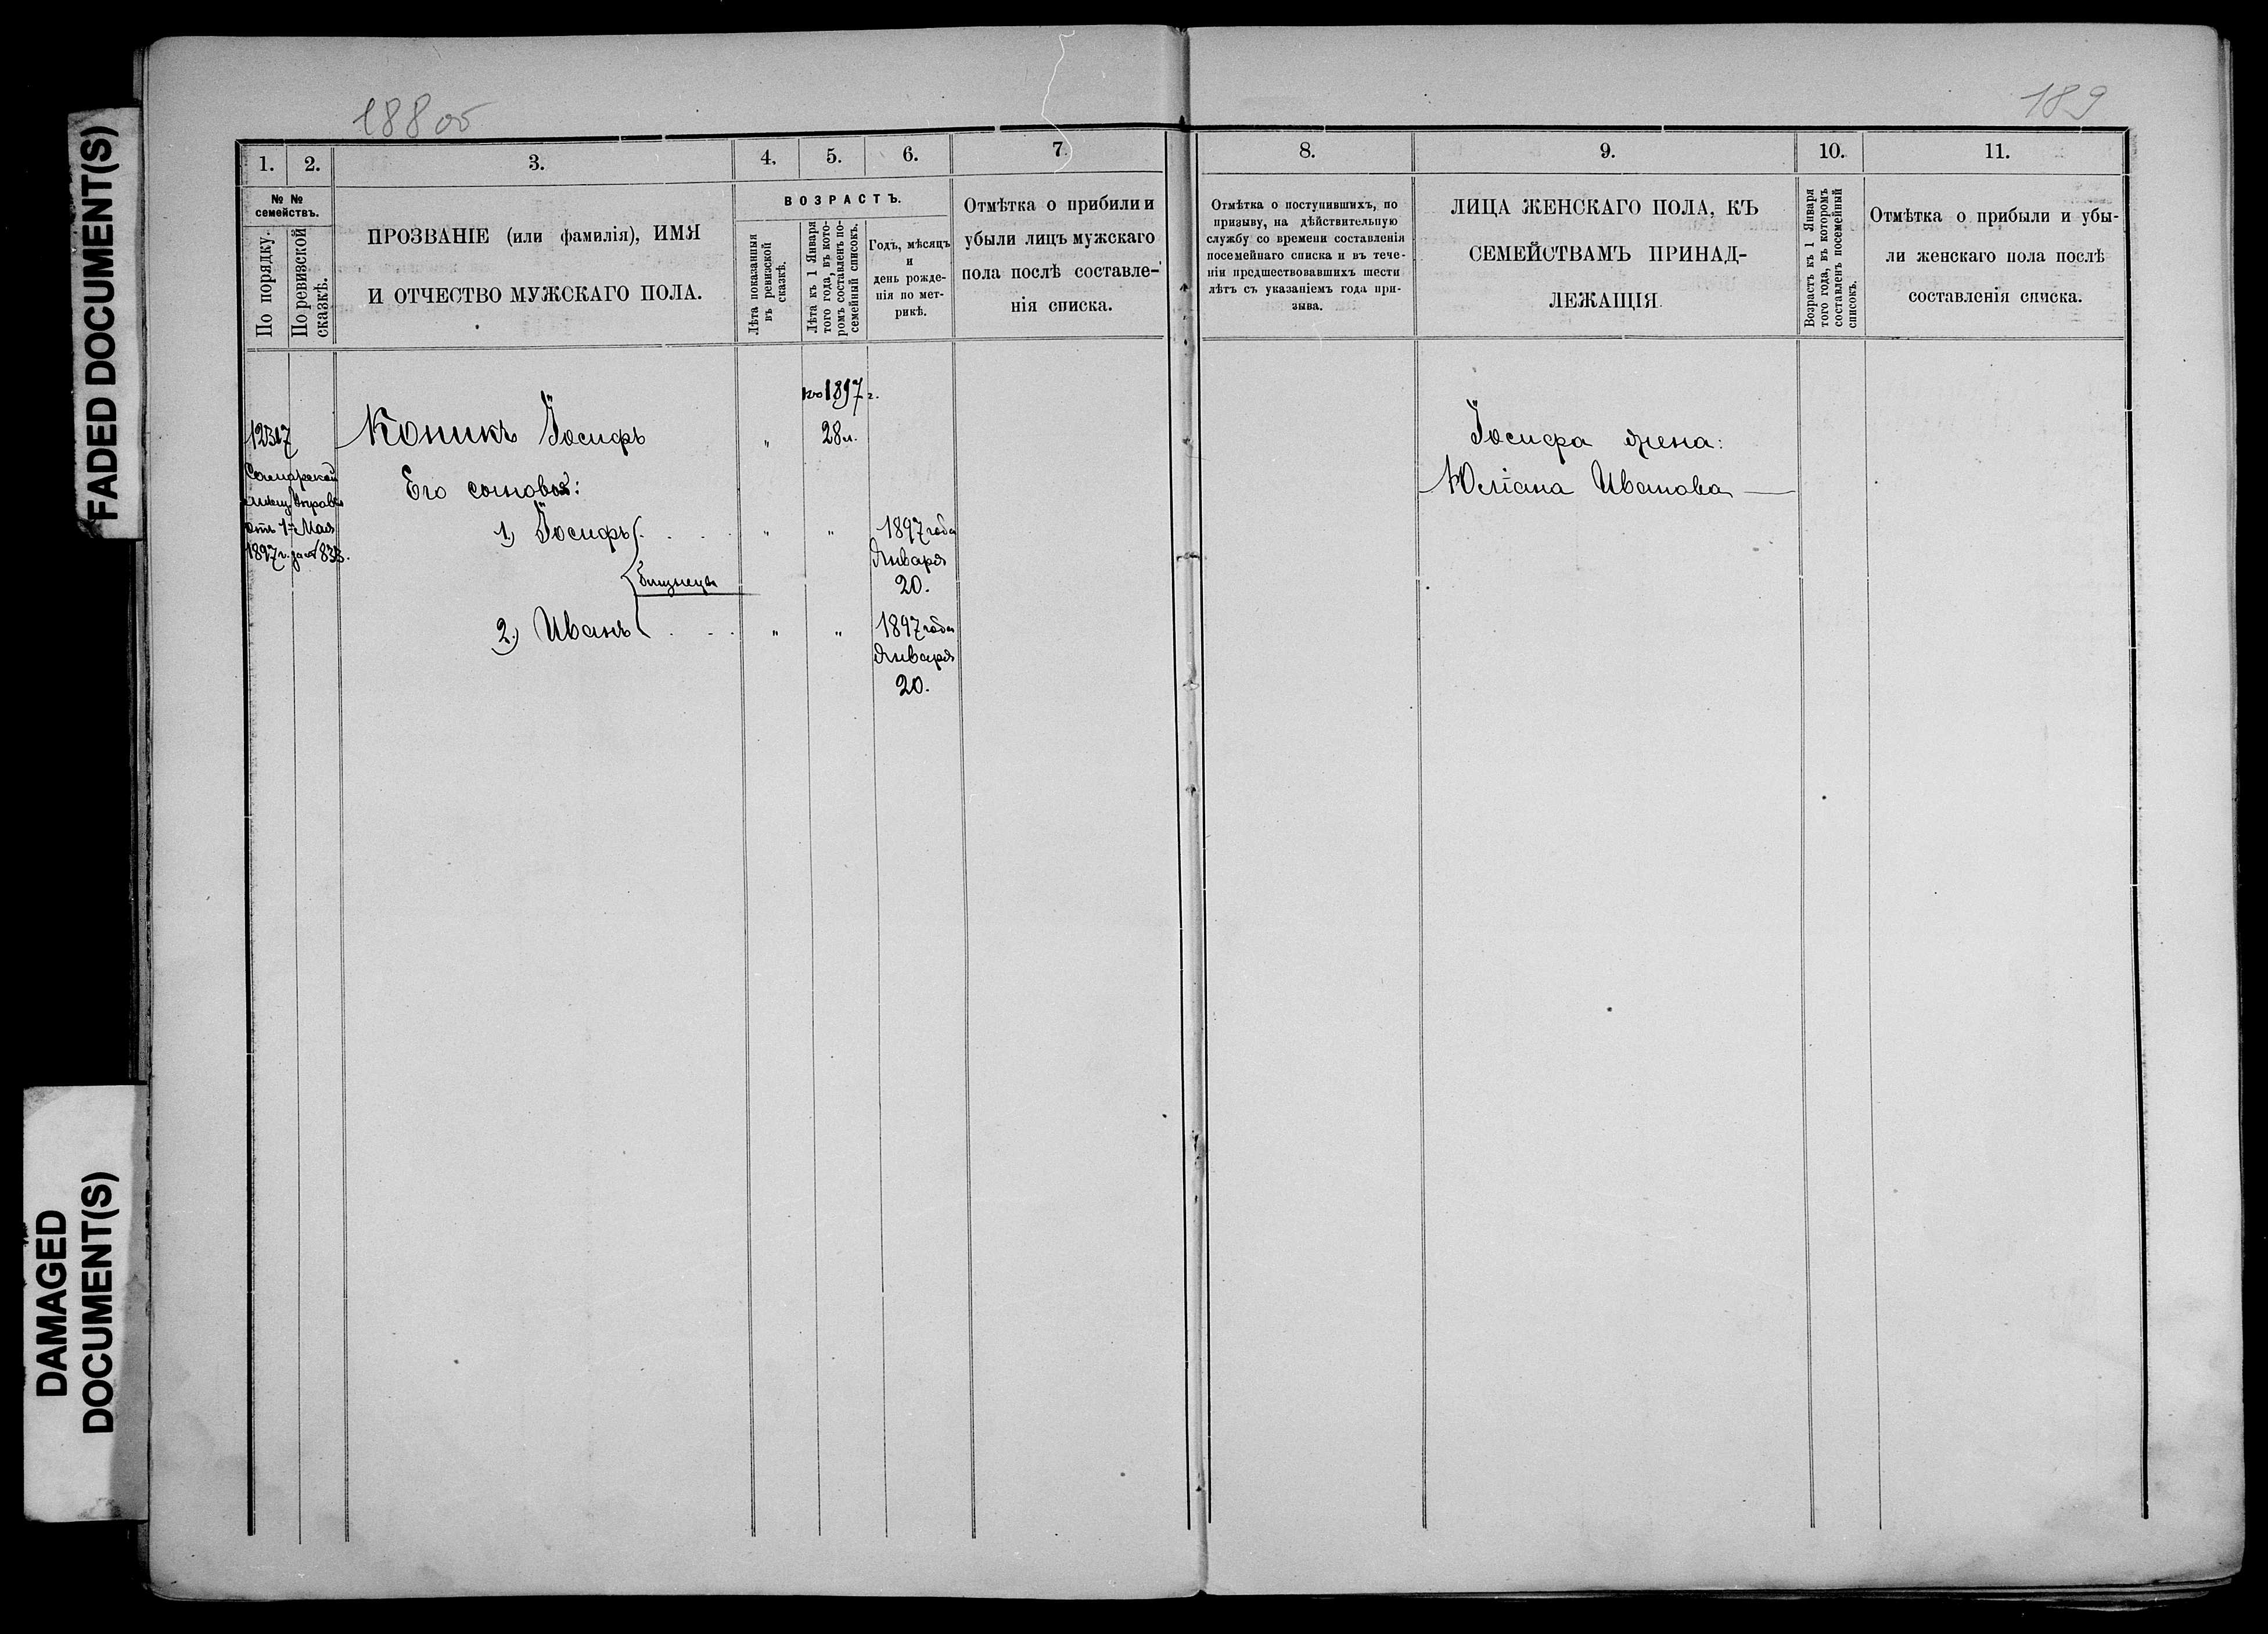 FADED DOCUMENT(S)
DAMAGED
DOCUMENT(S)
188 об
189
1. 2. 3. 4. 5. 6. 7.
№ №
семействъ.
По порядку.
По ревизской
сказкѣ.
ПРОЗВАНІЕ (или фамилія), ИМЯ
И ОТЧЕСТВО МУЖСКАГО ПОЛА.
ВОЗРАСТЪ.
Лѣта показанныя
въ ревизской
сказкѣ.
Лѣта къ 1 Января
того года, въ кото-
ромъ составленъ по-
семейный списокъ.
Годъ, мѣсяцъ
и
день рожде-
нія по мет-
рикѣ.
Отмѣтка о прибили и
убыли лицъ мужскаго
пола послѣ составле-
нія списка.
8. 9. 10. 11.
Отмѣтка о поступившихъ, по
призыву, на дѣйствительную
службу со времени составленія
посемейнаго списка и въ тече-
ніи предшествовавшихъ шести
лѣтъ съ указаніемъ года при-
зыва.
ЛИЦА ЖЕНСКАГО ПОЛА, КЪ
СЕМЕЙСТВАМЪ ПРИНАД-
ЛЕЖАЩІЯ.
Возрастъ къ 1 Января
того года, въ которомъ
составленъ посемейный
списокъ.
Отмѣтка о прибыли и убы-
ли женскаго пола послѣ
составленія списка.
по 1897 г.
Коникъ Іосифъ " 28 л.
Самарской
мѣщ. Управы
отъ 17 Мая
1897 г. за № 833.
Его сыновья:
1) Іосифъ . . . . " " 1897 года
Января
20.
близнецы
2) Иванъ . . . " " 1897 года
Января
20.
Іосифа жена:
Юліана Иванова —